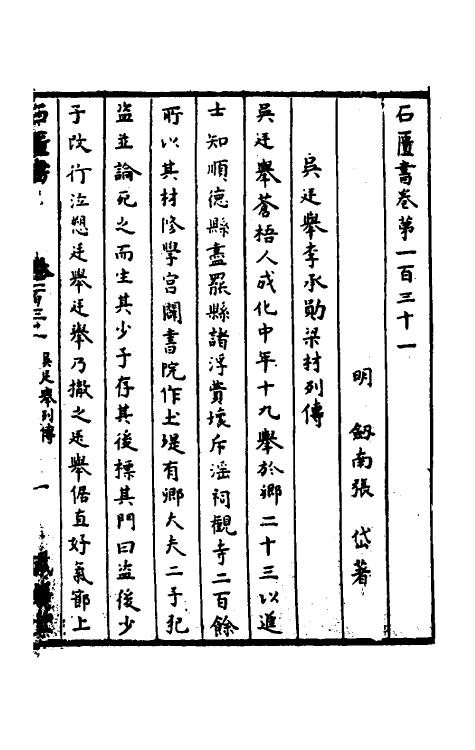 石匱書卷第一百三十一
明 劔南張 岱著
吳廷舉李承勛梁材列傳
吳廷舉蒼梧人成化中年十九舉於鄉二十三以進
士知順德縣盡罷縣諸浮費壞斥滛祠觀寺二百餘
所以其材修學宮闢書院作土堤有鄉大夫二子犯
盜並論死之而生其少子存其後標其門曰盜後少
子改行泣愬廷舉廷舉乃撤之廷舉倨直好氣節上
石匱書 卷一百三十一 吳廷舉列傳 一